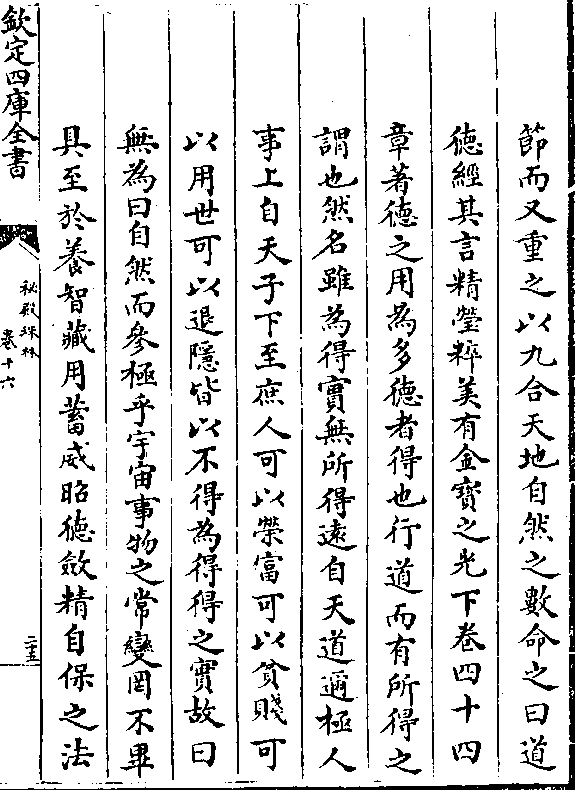 節而又重之以九合天地自然之數命之曰道
德經其言精瑩粹美有金寶之光下卷四十四
章著德之用為多德者得也行道而有所得之
謂也然名雖為得實無所得遠自天道邇極人
事上自天子下至庶人可以榮富可以貧賤可
以用世可以退隱皆以不得為得得之實故曰
無為曰自然而參極乎宇宙事物之常變罔不畢
具至於養智藏用蓄威昭德斂精自保之法
欽定四庫全書
秘殿珠林
卷十六
二十五